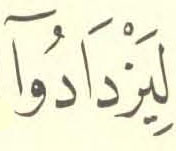 لِيَزْدَادُوٓا